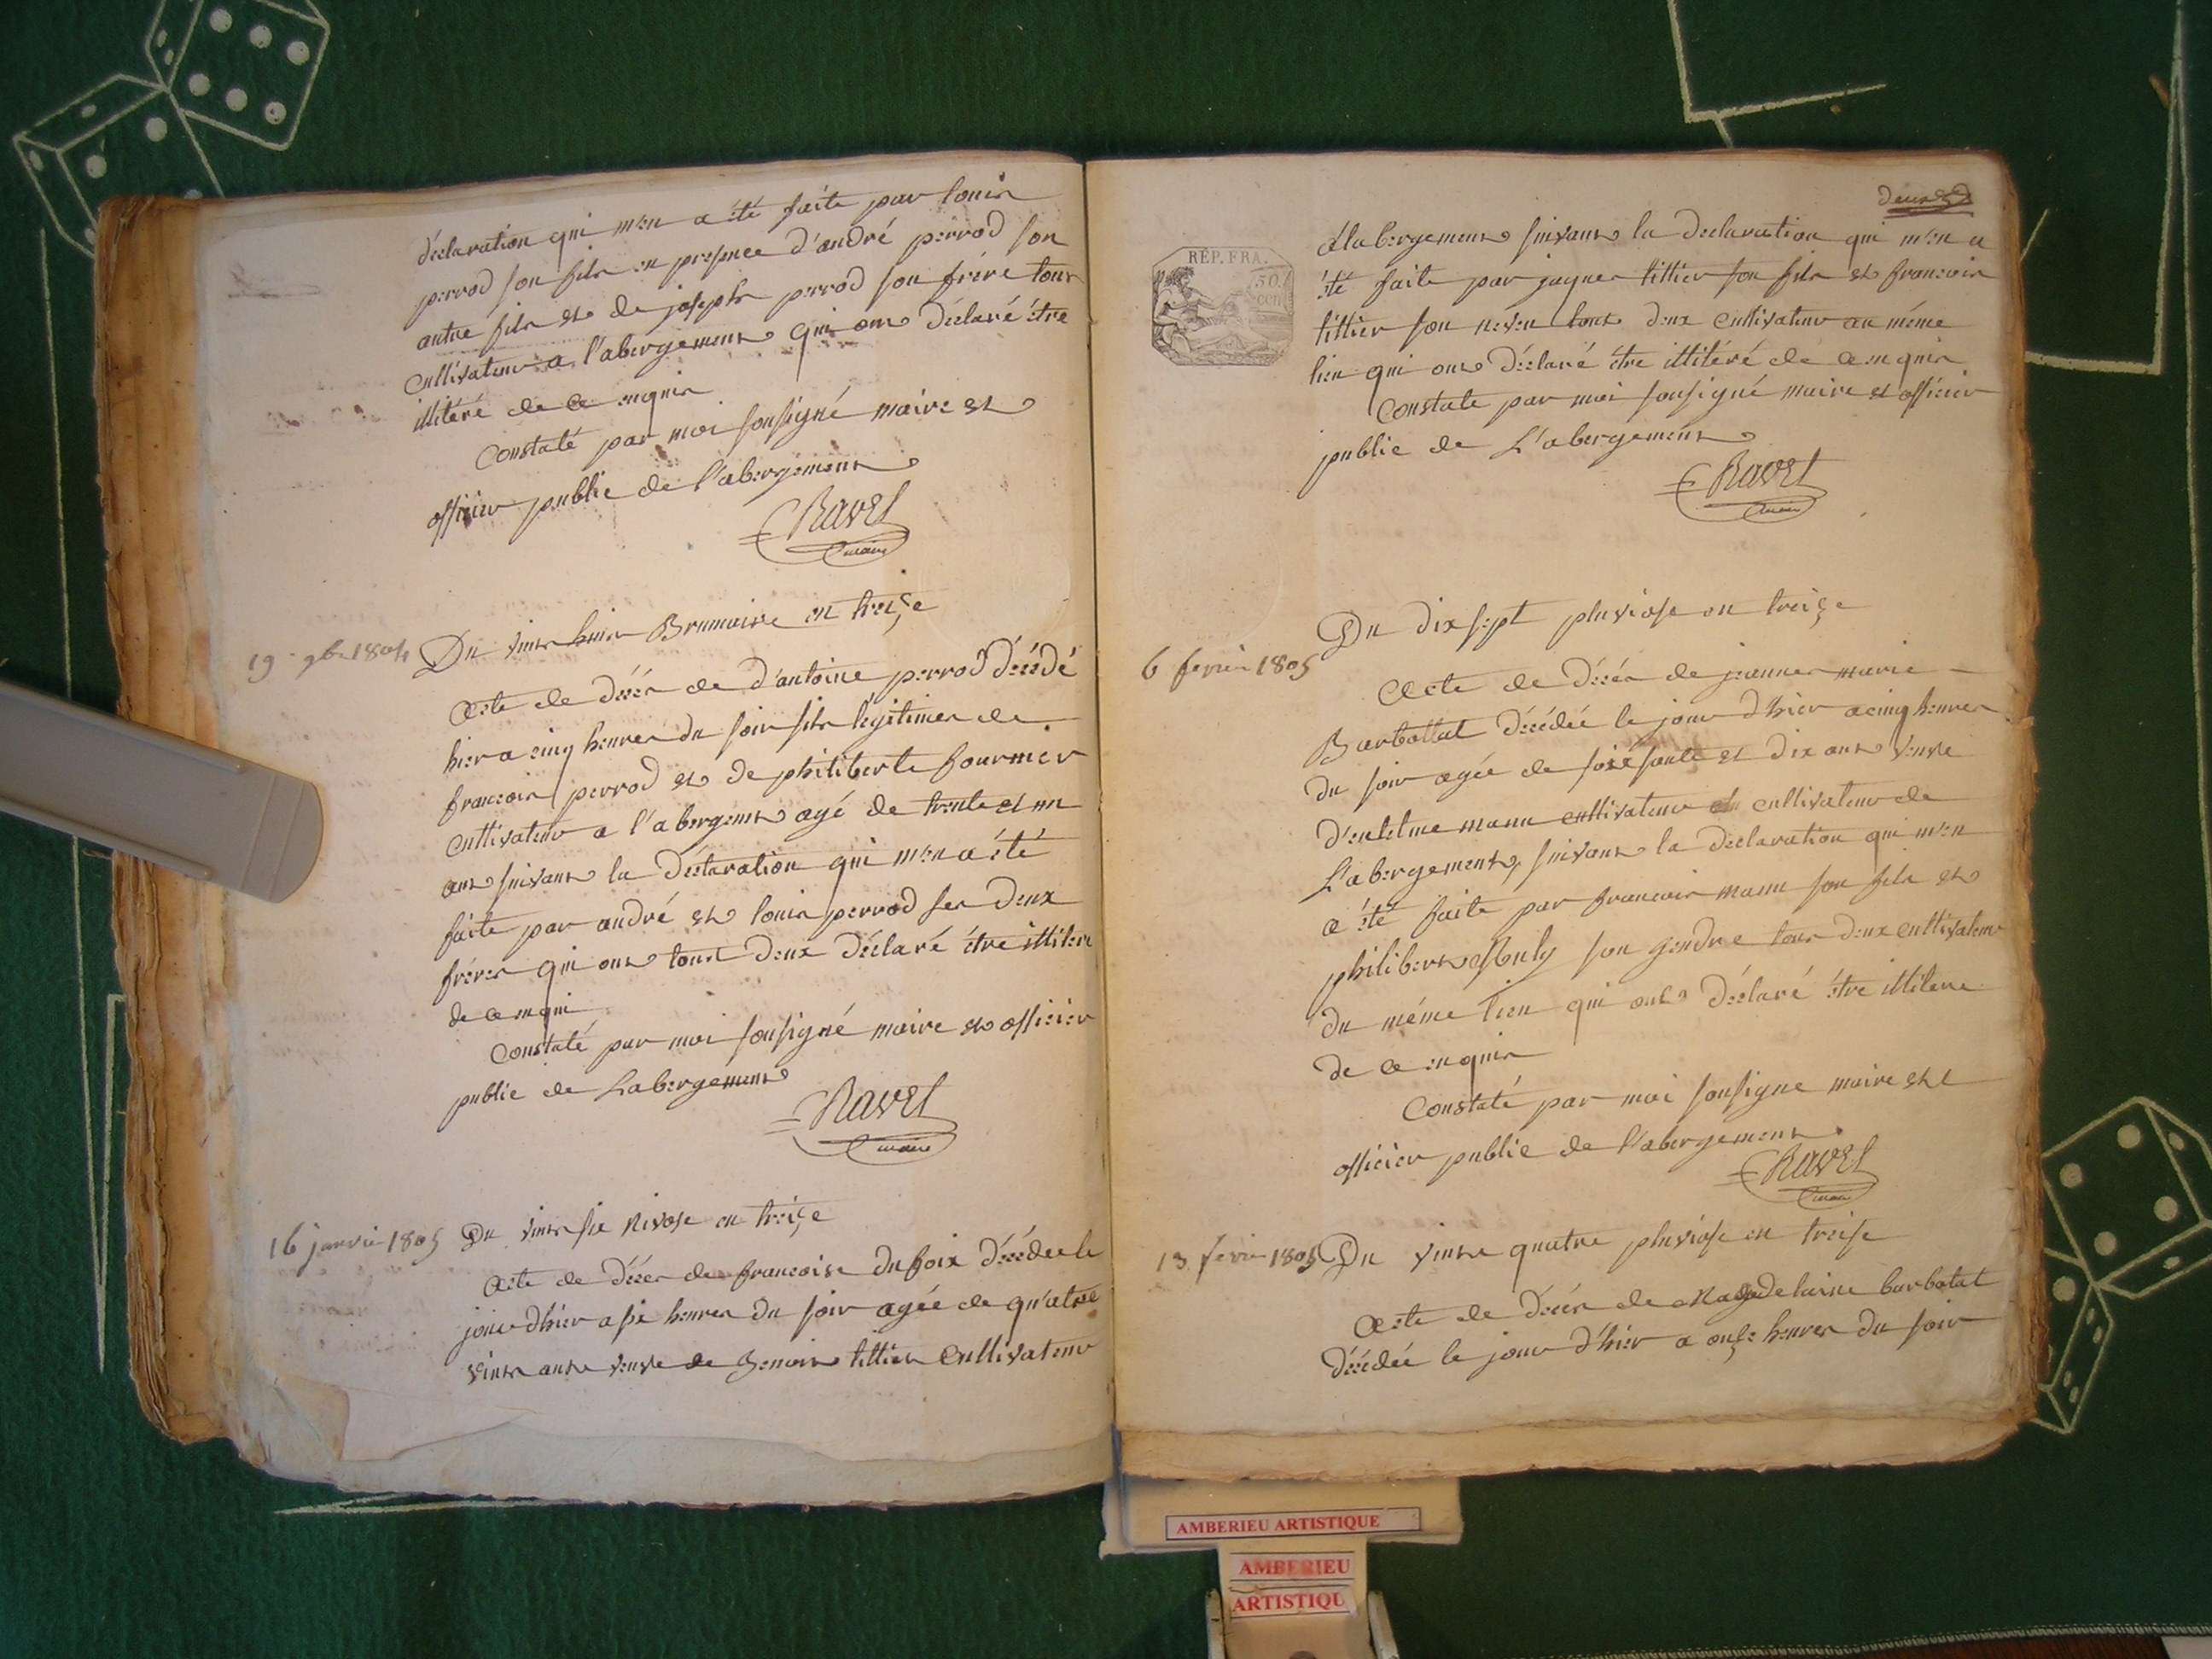 déclaration qui m'en a été faite par louis
perrod son fils en presence d'andré perrod son
autre fils et de joseph perrod son frère tous
cultivateur a l'abergement qui ont déclaré être
illitéré de ce enquis
Constaté par moi sousigné maire et
officier public de l'abergement
Ravet
maire
19 9bre 1804
Du vint huit Brumaire an treize
Acte de décés de d'antoine perrod décédé
hier a cinq heures du soir fils légitimes de
francois perrod et de philiberte fournier
cultivateur a l'abergemt agé de trente et un
ans suivant la déclaration qui m'en a été
faite par andré et louis perrod ses deux
fréres qui ont tous deux déclaré être illiteré
de ce enqui
Constaté par moi sousigné maire et officier
public de Labergement
Ravet
maire
16 janvier 1805
Du vint six Nivose an treize
Acte de déces de francoise Dufoix décédée le
jour d'hier a six heures du soir agée de qu'atre
vints ans veuve de Benoit tillier Cultivateur
deux
RÉP. FRA.
50
cen
a labergement suivant la declaration qui m'en a
été faite par jaques tillier son fils et francois
tillier son neveu tous deux cultivateur au même
lieu qui ont déclaré être illitéré de ce enquis
Constate par moi sousigné maire et officier
public de L'abergement
Ravet
maire
6 fevrier 1805
Du dix sept pluviose an treize
Acte de décés de jeanne marie
Barbollat décédée le jour d'hier a cinq heures
du soir agée de soixésante et dix ans veuve
d'entelme mann cultivateur cultivateur de
L'abergement, suivant la déclaration qui m'en
a été faite par francois mann son fils et
philibert Ruly son gendre tous deux cultivateur
du même lieu qui ont déclaré être illitere
de ce enquis
Constaté par moi sousigne maire et
officier public de l'abergement
Ravet
maire
13 fevrier 1805
Du vint quatre pluviose an treise
Acte de décés de Magdelaine barbotat
décédée le jour d'hier a onze heures du soir
AMBERIEU ARTISTIQUE
AMBERIEU
ARTISTIQU